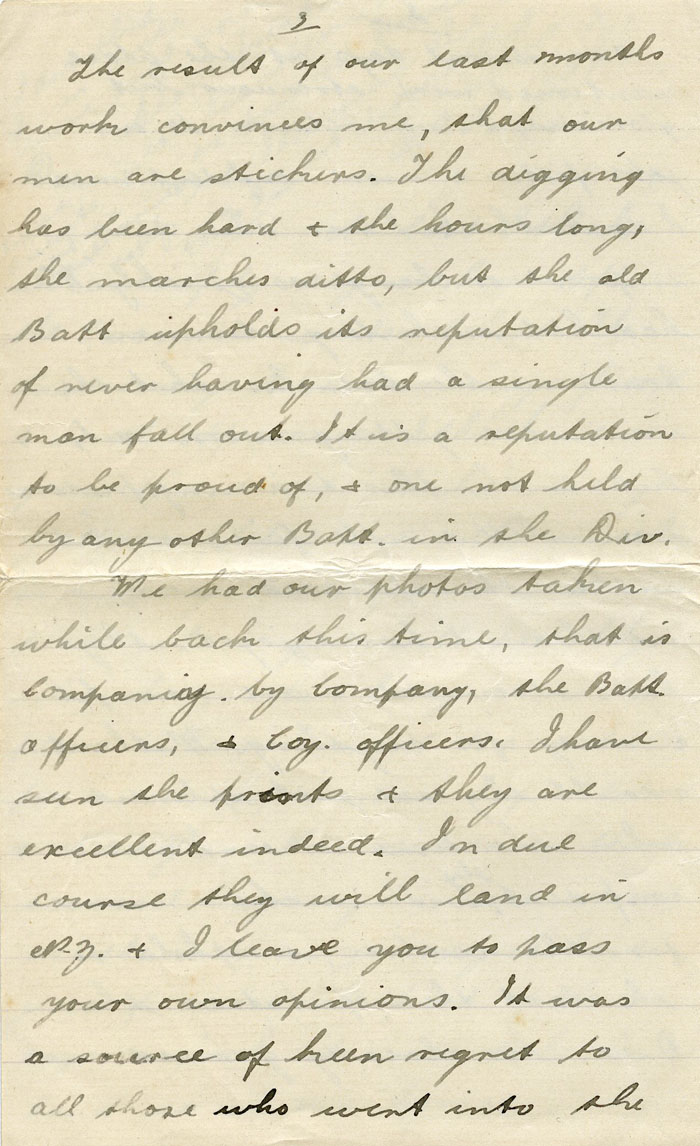 3
The result of our last months
work convinces me, that our
men are stickers. The digging
has been hard & the hours long,
the marches ditto, but the old
Batt upholds its reputation
of never having had a single
man fall out. It is a reputation
to be proud of, & one not held
by any other Batt. in the Div.
We had our photos taken
while back this time, that is
Company by Company, the Batt.
officers, & Coy. officers. I have
seen the prints & they are
excellent indeed. In due
course they will land in
N.Z. & I leave you to pass
your own opinions. It was
a source of keen regret to
all those who went into the